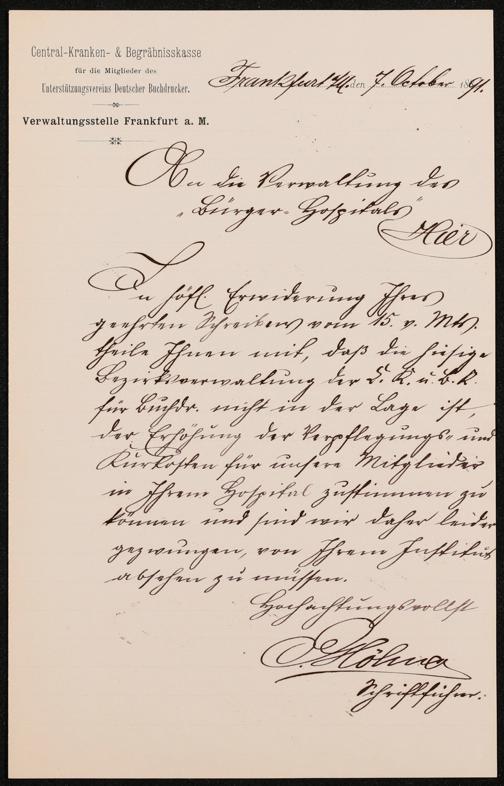 Central-Kranken- & Begräbnisskasse
für die Mitglieder des
Unterstützungsvereins Deutscher Buchdrucker.
Verwaltungsstelle Frankfurt a. M.
Frankfurt a/M. den 7. October 1891.
An die Verwaltung des
„Bürger-Hospitals"
Hier
In höfl. Erwiderung Ihres
geehrten Schreibens vom 15. v. Mts.
theile Ihnen mit, daß die hiesige
Bezirksverwaltung der C. K. u. B. K.
für Buchdr. nicht in der Lage ist,
der Erhöhung der Verpflegungs- und
Kurkosten für unsere Mitglieder
in Ihrem Hospital zustimmen zu
können und sind wir daher leider
gezwungen, von Ihrem Institut
absehen zu müssen.
Hochachtungsvollst
Schriftführer.